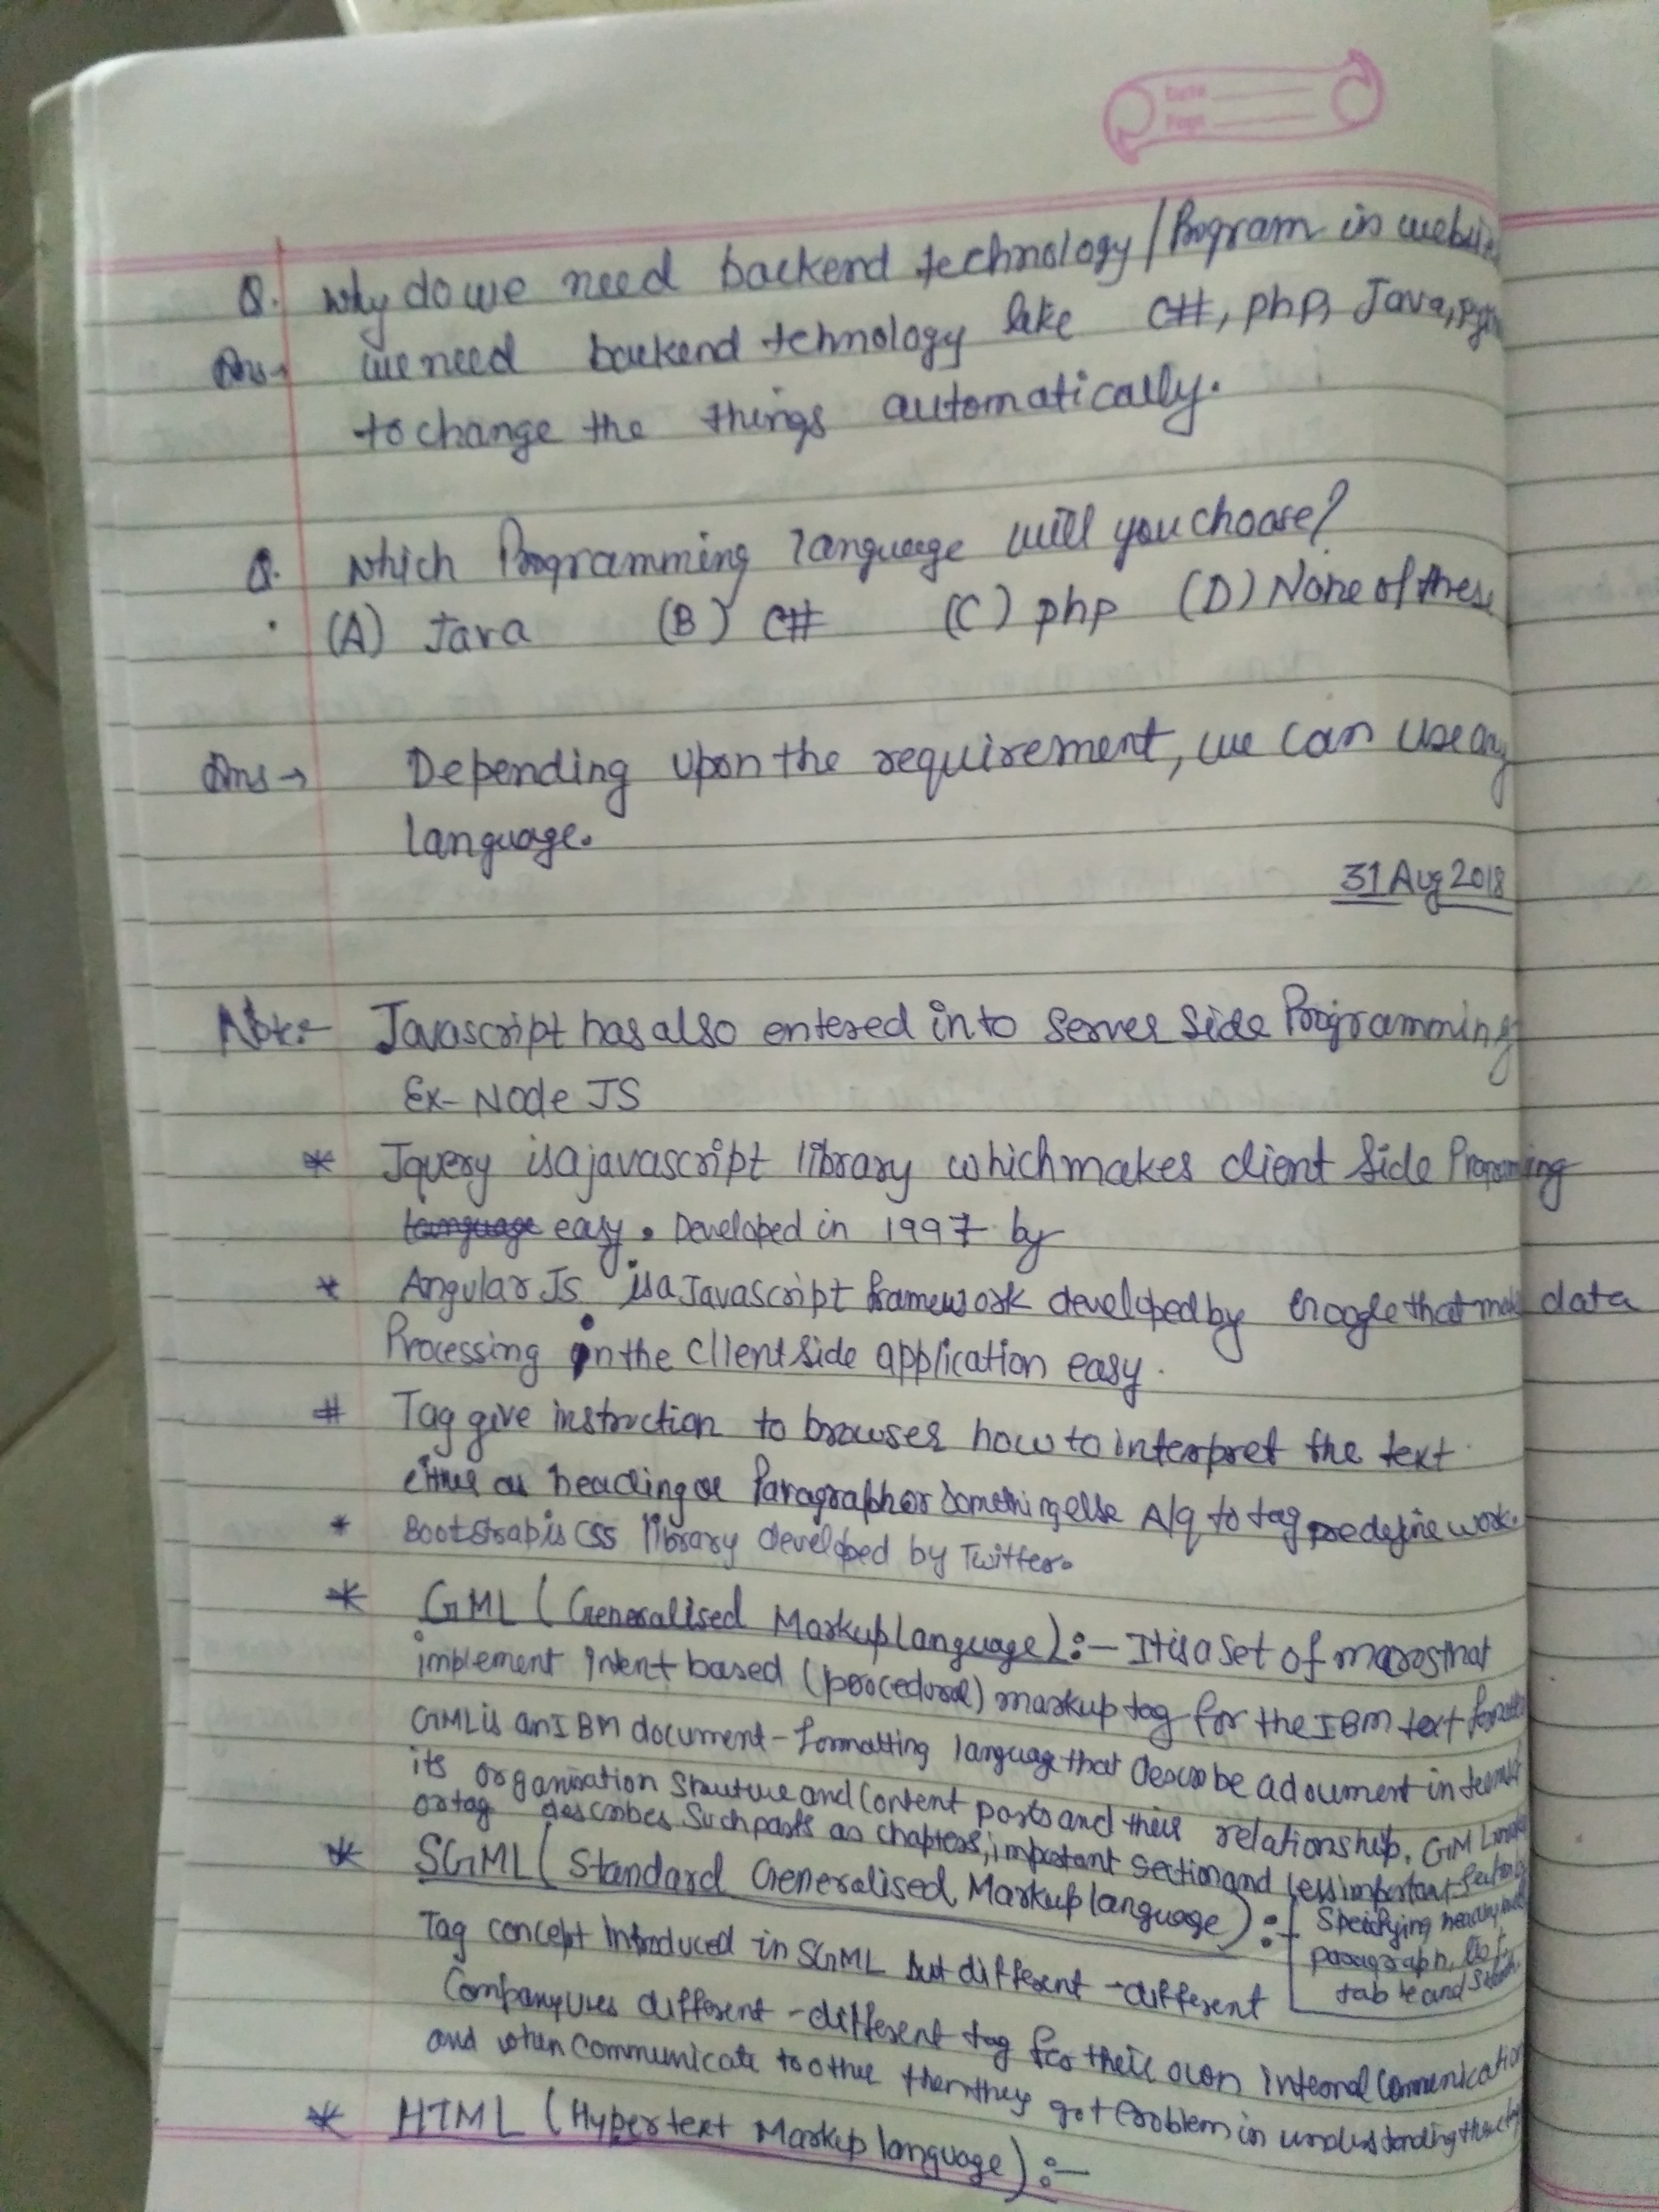 Date
Page
Q. Why do we need backend technology/Program in website
Ans→ we need backend tehnology like C#, php, Java,
to change the things automatically.
Q. which Programming language will you choose?
(A) Java (B) C# (C) php (D) None of these
Ans→ Depending upon the requirement, we can use any
language.
31 Aug 2018
Note:- Javascript has also entered in to server side Programming
Ex- Node JS
* Jquery is a javascript library which makes client side
language easy. Developed in 1997 by
* Angular Js is a JavaScript framework developed by Google that make data
Processing in the client side application easy.
# Tag give instruction to browser how to interpret the text
either as heading or Paragraph or something else A/q to tag predefine work.
* Bootstrap is CSS library developed by Twitter.
* GML (Generalised Markup language):- It is a set of macros that
implement intent based (procedural) markup tag for the IBM text
GML is an IBM document-formatting language that describe a doument in terms of
its organisation structure and content parts and their relationship. GML
or tag describes such parts as chapters, important section and less important
* SGML (Standard Generalised Markup language):-
Specifying
paragraph, list,
table and
Tag concept introduced in SGML but different-different
Company uses different-different tag for their own internal Communication
and when communicate to other then they got Problem in understanding
* HTML (Hypertext Markup language):-